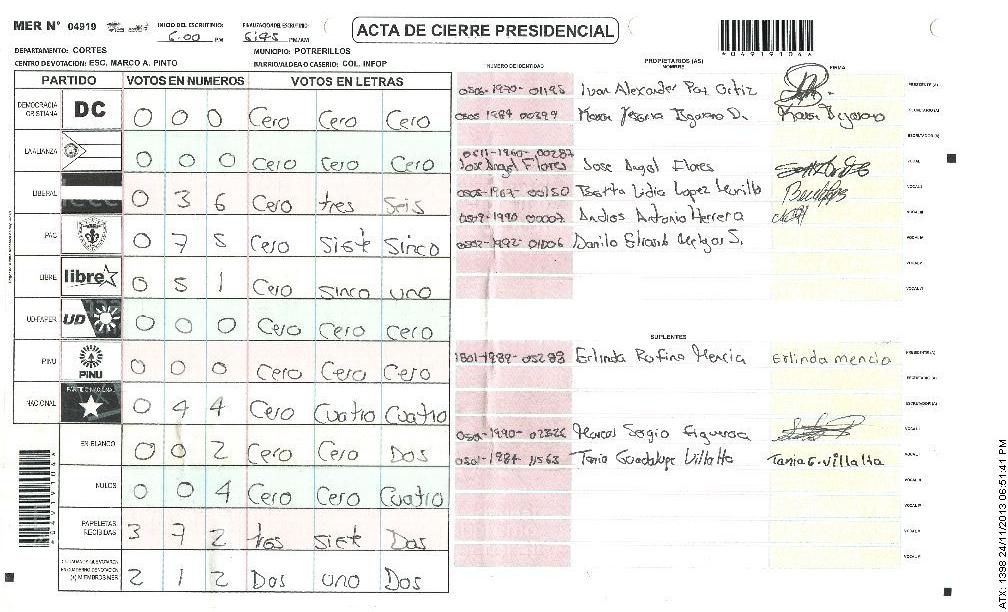 MER N° 04919
INICIO DEL ESCRUTINIO: 6:00 PM
FINALIZACION DEL ESCRUTINIO: 6:45 PM/AM
ACTA DE CIERRE PRESIDENCIAL
DEPARTAMENTO: CORTES
MUNICIPIO: POTRERILLOS
CENTRO DE VOTACION: ESC. MARCO A. PINTO
BARRIO/ALDEA O CASERIO: COL. INFOP
PARTIDO VOTOS EN NUMEROS VOTOS EN LETRAS
DEMOCRACIA CRISTIANA DC 0 0 0 Cero Cero Cero
LA ALIANZA 0 0 0 Cero Cero Cero
LIBERAL 0 3 6 Cero tres Seis
PAC 0 7 5 Cero Siete Sinco
LIBRE libre 0 5 1 Cero Sinco uno
UD-FAPER UD 0 0 0 Cero Cero Cero
PINU PINU 0 0 0 Cero Cero Cero
NACIONAL PARTIDO NACIONAL 0 4 4 Cero Cuatro Cuatro
EN BLANCO 0 0 2 Cero Cero Dos
NULOS 0 0 4 Cero Cero Cuatro
PAPELETAS RECIBIDAS 3 7 2 tres Siete Dos
CIUDADANOS QUE VOTARON EN CUADERNO DE VOTACION (+) MIEMBROS MER 2 1 2 Dos uno Dos
PROPIETARIOS (AS)
NUMERO DE IDENTIDAD NOMBRE FIRMA
Ivan Alexander Paz Ortiz PRESIDENTE (A)
0505 1984 00399 Karen D. SECRETARIO (A)
ESCRUTADOR (A)
0511-1960-00287
Jose Angel Flores Jose Angel Flores VOCAL
Lidia Lopez VOCAL I
0502-1990 00007 Antonio Herrera VOCAL III
0502-1992-01006 Danilo S. VOCAL IV
VOCAL V
VOCAL VI
SUPLENTES
1801-1989-05288 Erlinda Rufina Mencia Erlinda mencia PRESIDENTE (A)
SECRETARIO (A)
ESCRUTADOR (A)
0501-1990-02326 Marcos Sergio Figueroa VOCAL I
0501-1984 11563 Tania Guadalupe Villalta Tania G. villalta VOCAL
VOCAL III
VOCAL IV
VOCAL V
VOCAL VI
*04919104*
ATX: 1398 24/11/2013 06:51:41 PM